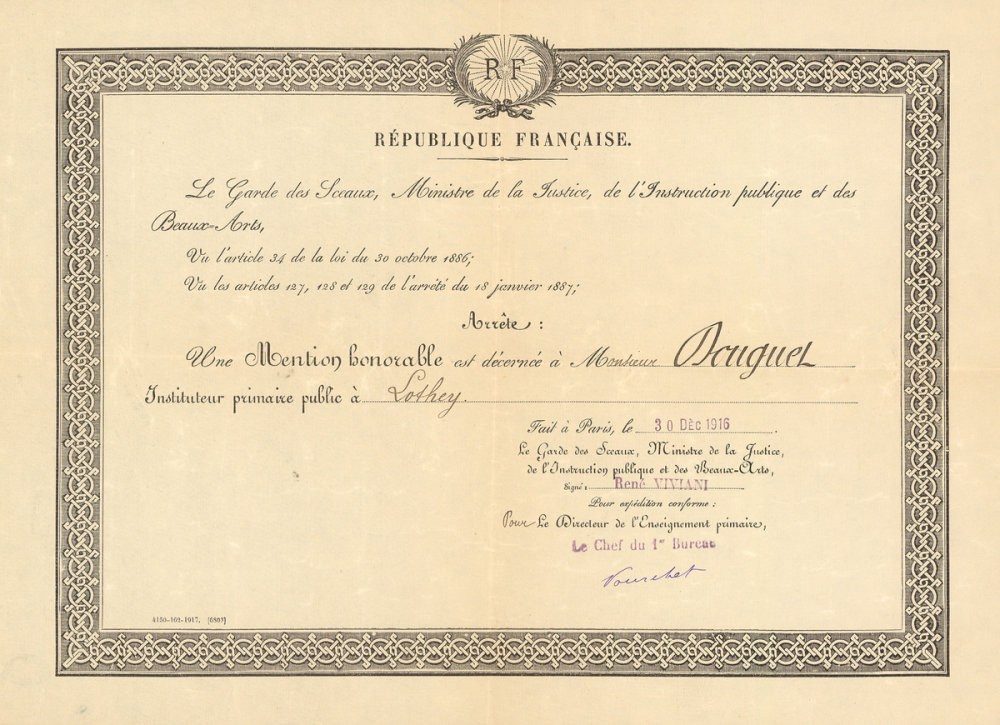 RF
RÉPUBLIQUE FRANÇAISE.
Le Garde des Sceaux, Ministre de la Justice, de l'Instruction publique et des
Beaux-Arts,
Vu l'article 34 de la loi du 30 octobre 1886;
Vu les articles 127, 128 et 129 de l'arrêté du 18 janvier 1887;
Arrête :
Une Mention honorable est décernée à Monsieur Bouguet
Instituteur primaire public à Lothey.
Fait à Paris, le 30 Déc 1916.
Le Garde des Sceaux, Ministre de la Justice,
de l'Instruction publique et des Beaux-Arts,
Signé : René VIVIANI
Pour expédition conforme :
Pour Le Directeur de l'Enseignement primaire,
Le Chef du 1er Bureau
4150-102-1917. [6803]